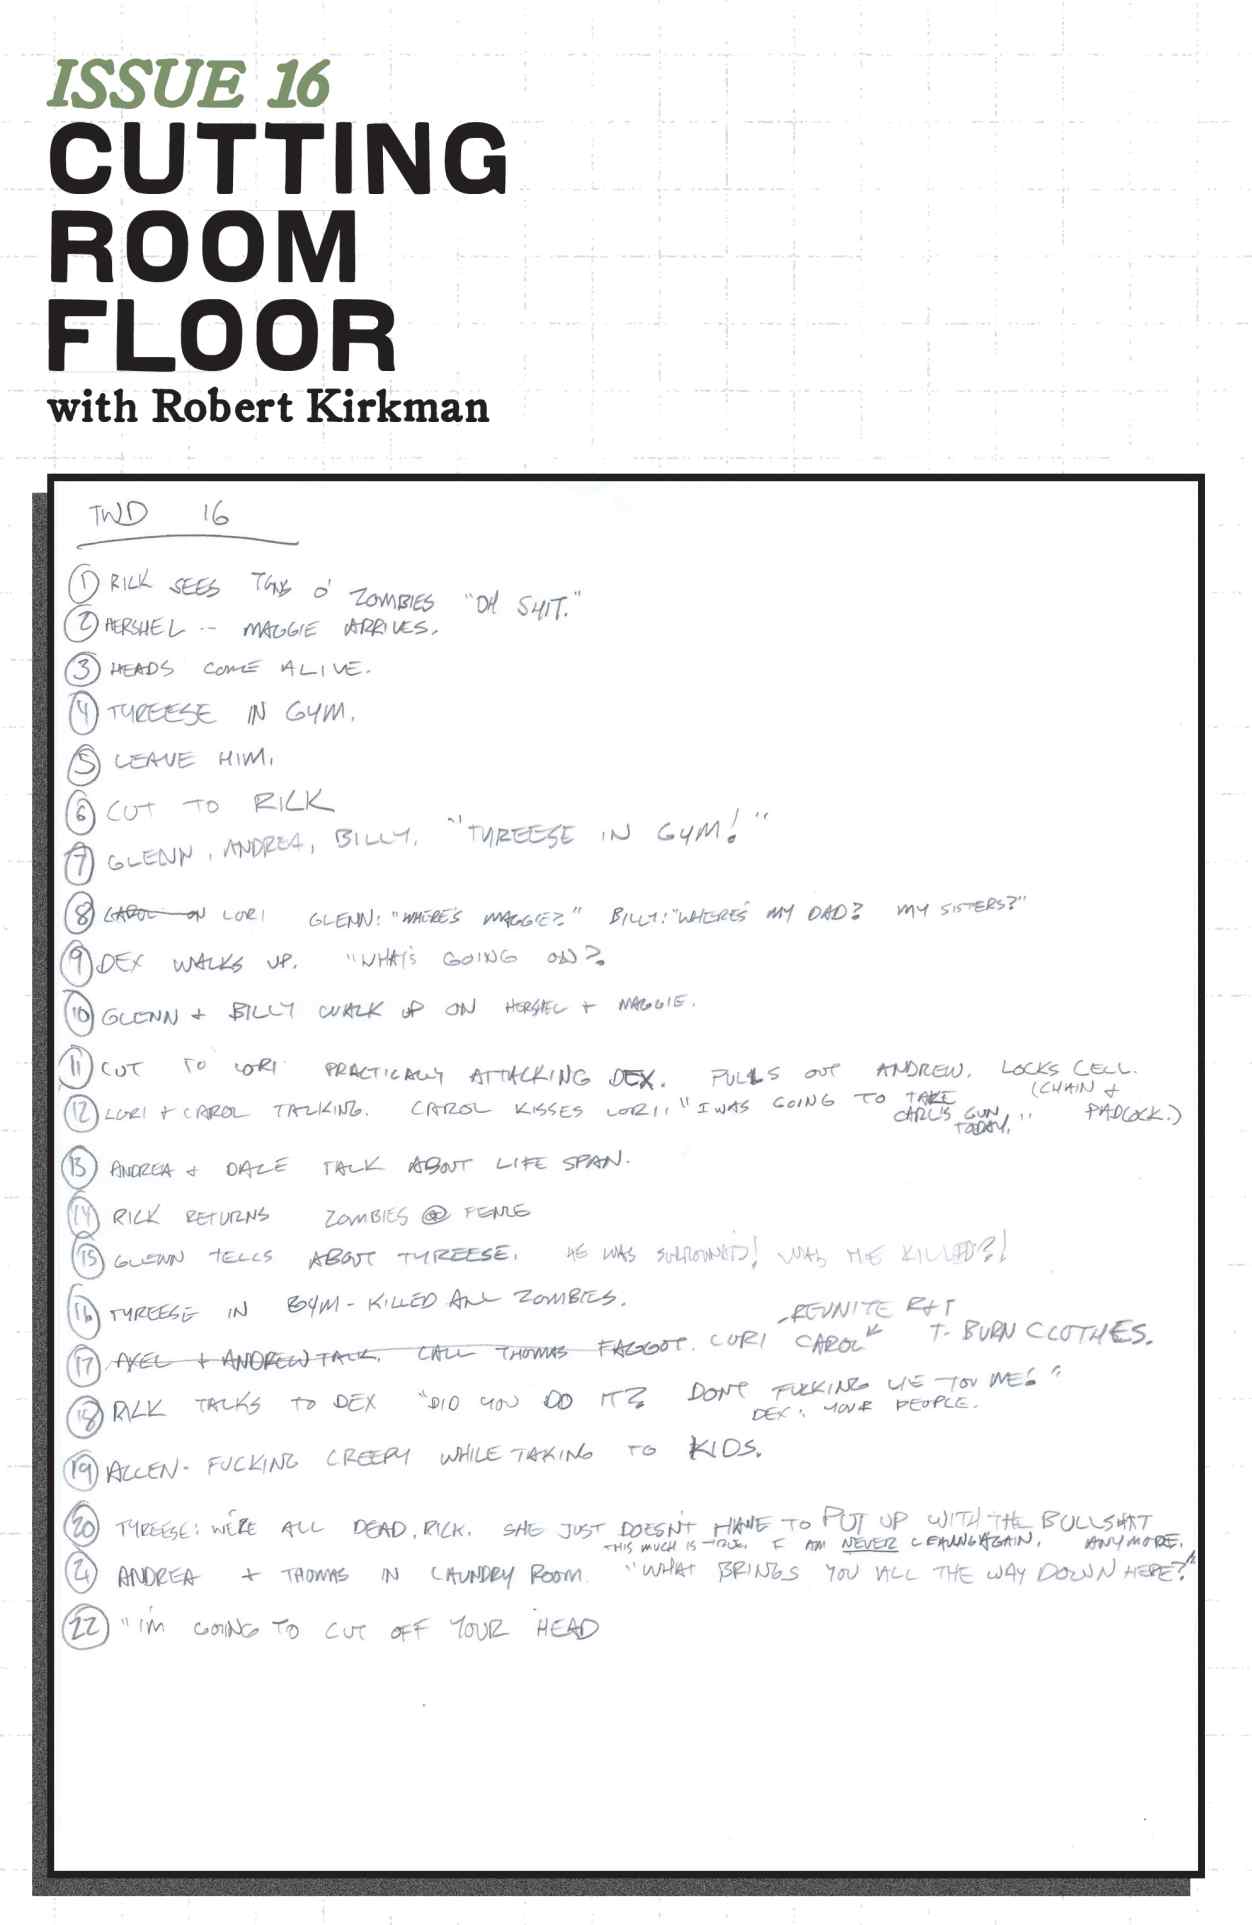 ISSUE 16
CUTTING
ROOM
FLOOR
with Robert Kirkman
TWD 16
1 RICK SEES TONS O' ZOMBIES "OH SHIT."
2 HERSHEL -- MAGGIE ARRIVES.
3 HEADS COME ALIVE.
4 TYREESE IN GYM.
5 LEAVE HIM.
6 CUT TO RICK
7 GLENN, ANDREA, BILLY. "TYREESE IN GYM!"
8 CAROL ON LORI GLENN: "WHERE'S MAGGIE?" BILLY: "WHERE'S MY DAD? MY SISTERS?"
9 DEX WALKS UP. "WHAT'S GOING ON?
10 GLENN + BILLY WALK UP ON HERSHEL + MAGGIE.
11 CUT TO LORI PRACTICALLY ATTACKING DEX. PULLS OUT ANDREW. LOCKS CELL.
(CHAIN + PADLOCK.)
12 LORI + CAROL TALKING. CAROL KISSES LORI. "I WAS GOING TO TAKE
CARL'S GUN
TODAY."
13 ANDREA + DALE TALK ABOUT LIFE SPAN.
14 RICK RETURNS ZOMBIES @ FENCE
15 GLENN TELLS ABOUT TYREESE. HE WAS SURROUNDED! WAS HE KILLED?!
16 TYREESE IN GYM - KILLED ALL ZOMBIES.
- REUNITE R+T
17 AXEL + ANDREW TALK. CALL THOMAS FAGGOT. LORI CAROL T- BURN CLOTHES.
18 RICK TALKS TO DEX "DID YOU DO IT? DON'T FUCKING LIE TO ME!"
DEX: YOUR PEOPLE.
19 ALLEN - FUCKING CREEPY WHILE TAKING TO KIDS.
20 TYREESE: WE'RE ALL DEAD, RICK. SHE JUST DOESN'T HAVE TO PUT UP WITH THE BULLSHIT
ANYMORE.
THIS MUCH IS TRUE. I AM NEVER LEAVING AGAIN.
21 ANDREA + THOMAS IN LAUNDRY ROOM. "WHAT BRINGS YOU ALL THE WAY DOWN HERE?"
22 "I'M GOING TO CUT OFF YOUR HEAD